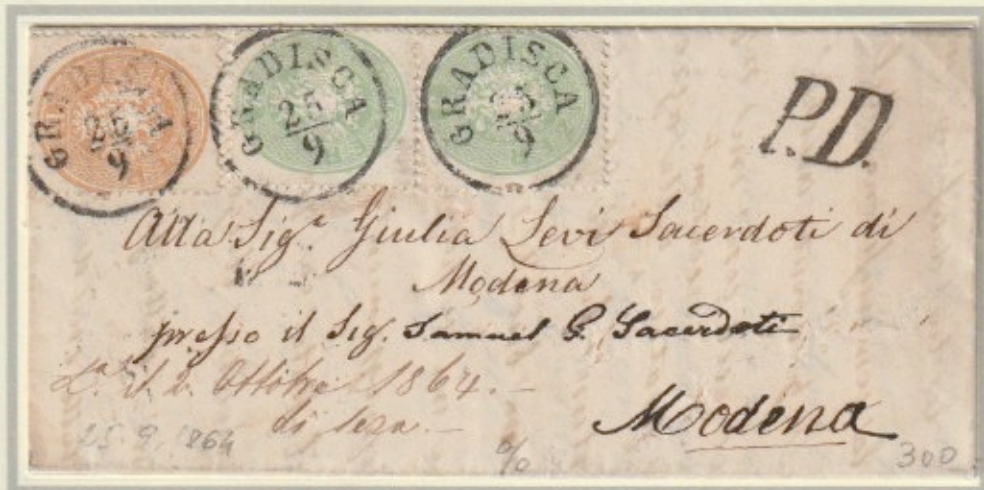 GRADISCA
25/9
GRADISCA
25/9
GRADISCA
25/9
P.D.
Alla Sig.ª Giulia Levi Sacerdoti di
Modena
presso il Sig. Samuel G. Sacerdoti
2. Ottobre 1864.–
di sera.–
Modena
25.9.1864
%
300